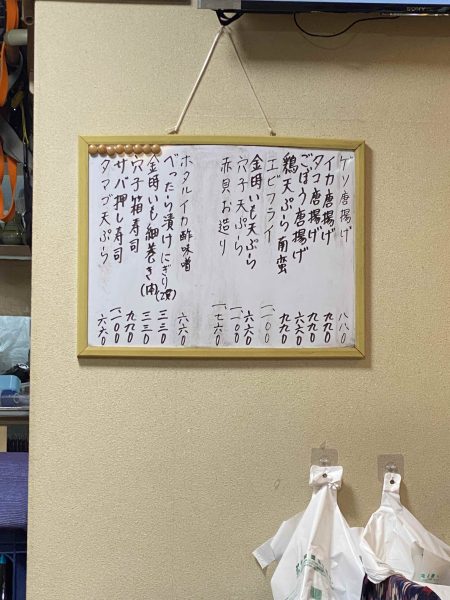 SONY
ゲソ唐揚げ 八八〇
イカ唐揚げ 九九〇
タコ唐揚げ 九九〇
ごぼう唐揚げ 六六〇
鶏天ぷら南蛮 九九〇
エビフライ 一一〇〇
金時いも天ぷら 六六〇
穴子天ぷら 一一〇〇
赤貝お造り 一七六〇
ホタルイカ酢味噌 六六〇
べったら漬けにぎり(2貫) 三三〇
金時いも細巻き 三三〇
穴子箱寿司 九九〇
サバ押し寿司 一一〇〇
タマゴ天ぷら 六六〇